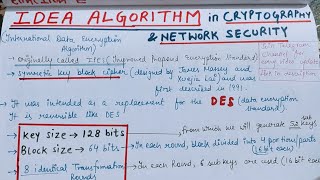 IDEA ALGORITHM in CRYPTOGRAPHY
& NETWORK SECURITY
(International Data Encryption
Algorithm)
→ originally called IPES (Improved Proposed Encryption Standard)
→ Symmetric key block cipher (designed by James Massey and
Xuejia Lai) and was
first described in 1991.
→ It was intended as a replacement for the DES (data encryption
standard).
It is reversible like DES
Key Size → 128 bits from which we will generate 52 sub
keys
Block size → 64 bits → in each round, block divided into 4 portions/parts
(16 bit each)
8 identical Transformation → in each Round, 6 sub keys are used (16 bit each)
Rounds